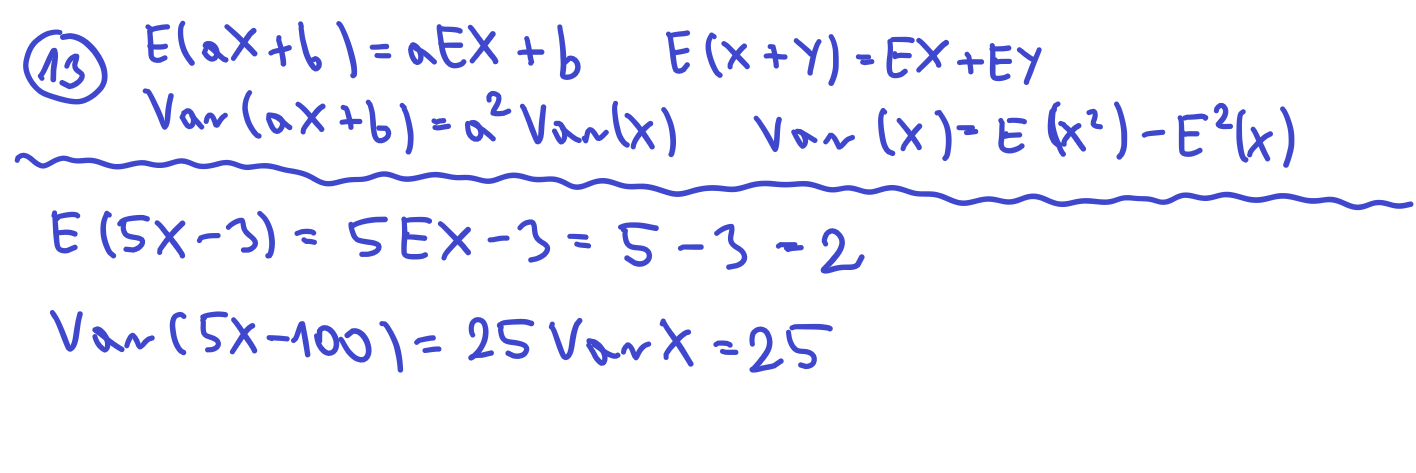 13 E(aX+b)=aEX+b E(X+Y)=EX+EY
Var(aX+b)=a²Var(X) Var(X)=E(X²)-E²(X)
E(5X-3)=5EX-3=5-3=2
Var(5X-100)=25VarX=25